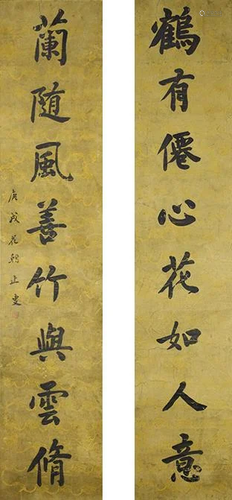 鶴有僊心花如人意
蘭隨風善竹與雲脩
庚戌花朝止叟